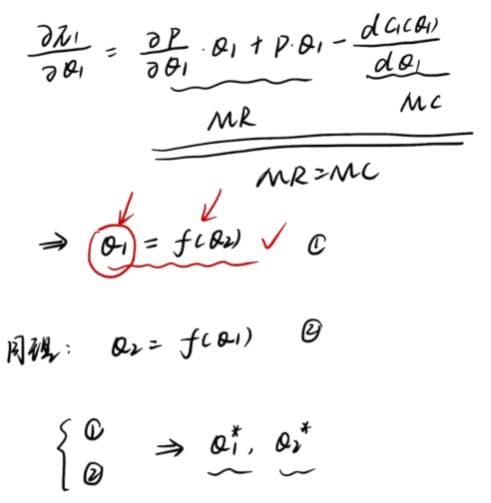 ∂π₁/∂Q₁ = ∂P/∂Q₁ · Q₁ + P · Q₁ - dC₁(Q₁)/dQ₁
MR MC
MR = MC
⇒ Q₁ = f(Q₂) ✓ ①
同理: Q₂ = f(Q₁) ②
{ ① ② ⇒ Q₁*, Q₂*